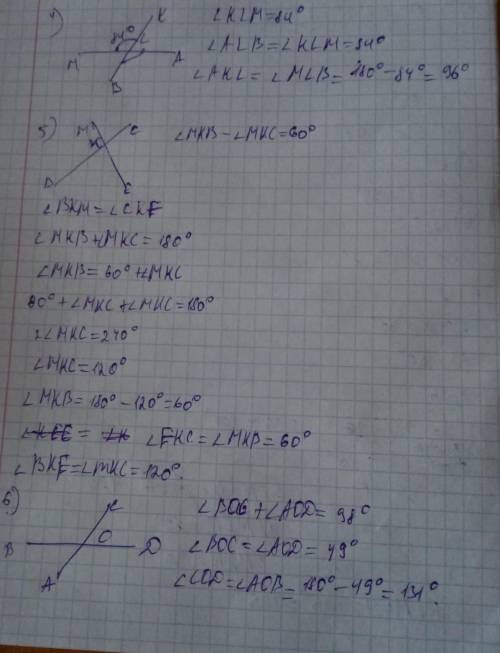 4)
K
84°
L
M
A
B
∠KLM=84°
∠ALB=∠KLM=84°
∠AKL=∠MLB=180°-84°=96°
5)
M
C
K
∠MKB-∠MKC=60°
∠BKM=∠CKE
∠MKB+∠MKC=180°
∠MKB=60°+∠MKC
60°+∠MKC+∠MKC=180°
2∠MKC=240°
∠MKC=120°
∠MKB=180°-120°=60°
∠EKC=∠MKB=60°
∠BKE=∠MKC=120°.
6)
C
B
O
D
A
∠BOC+∠AOD=98°
∠BOC=∠AOD=49°
∠COD=∠AOB=180°-49°=131°.